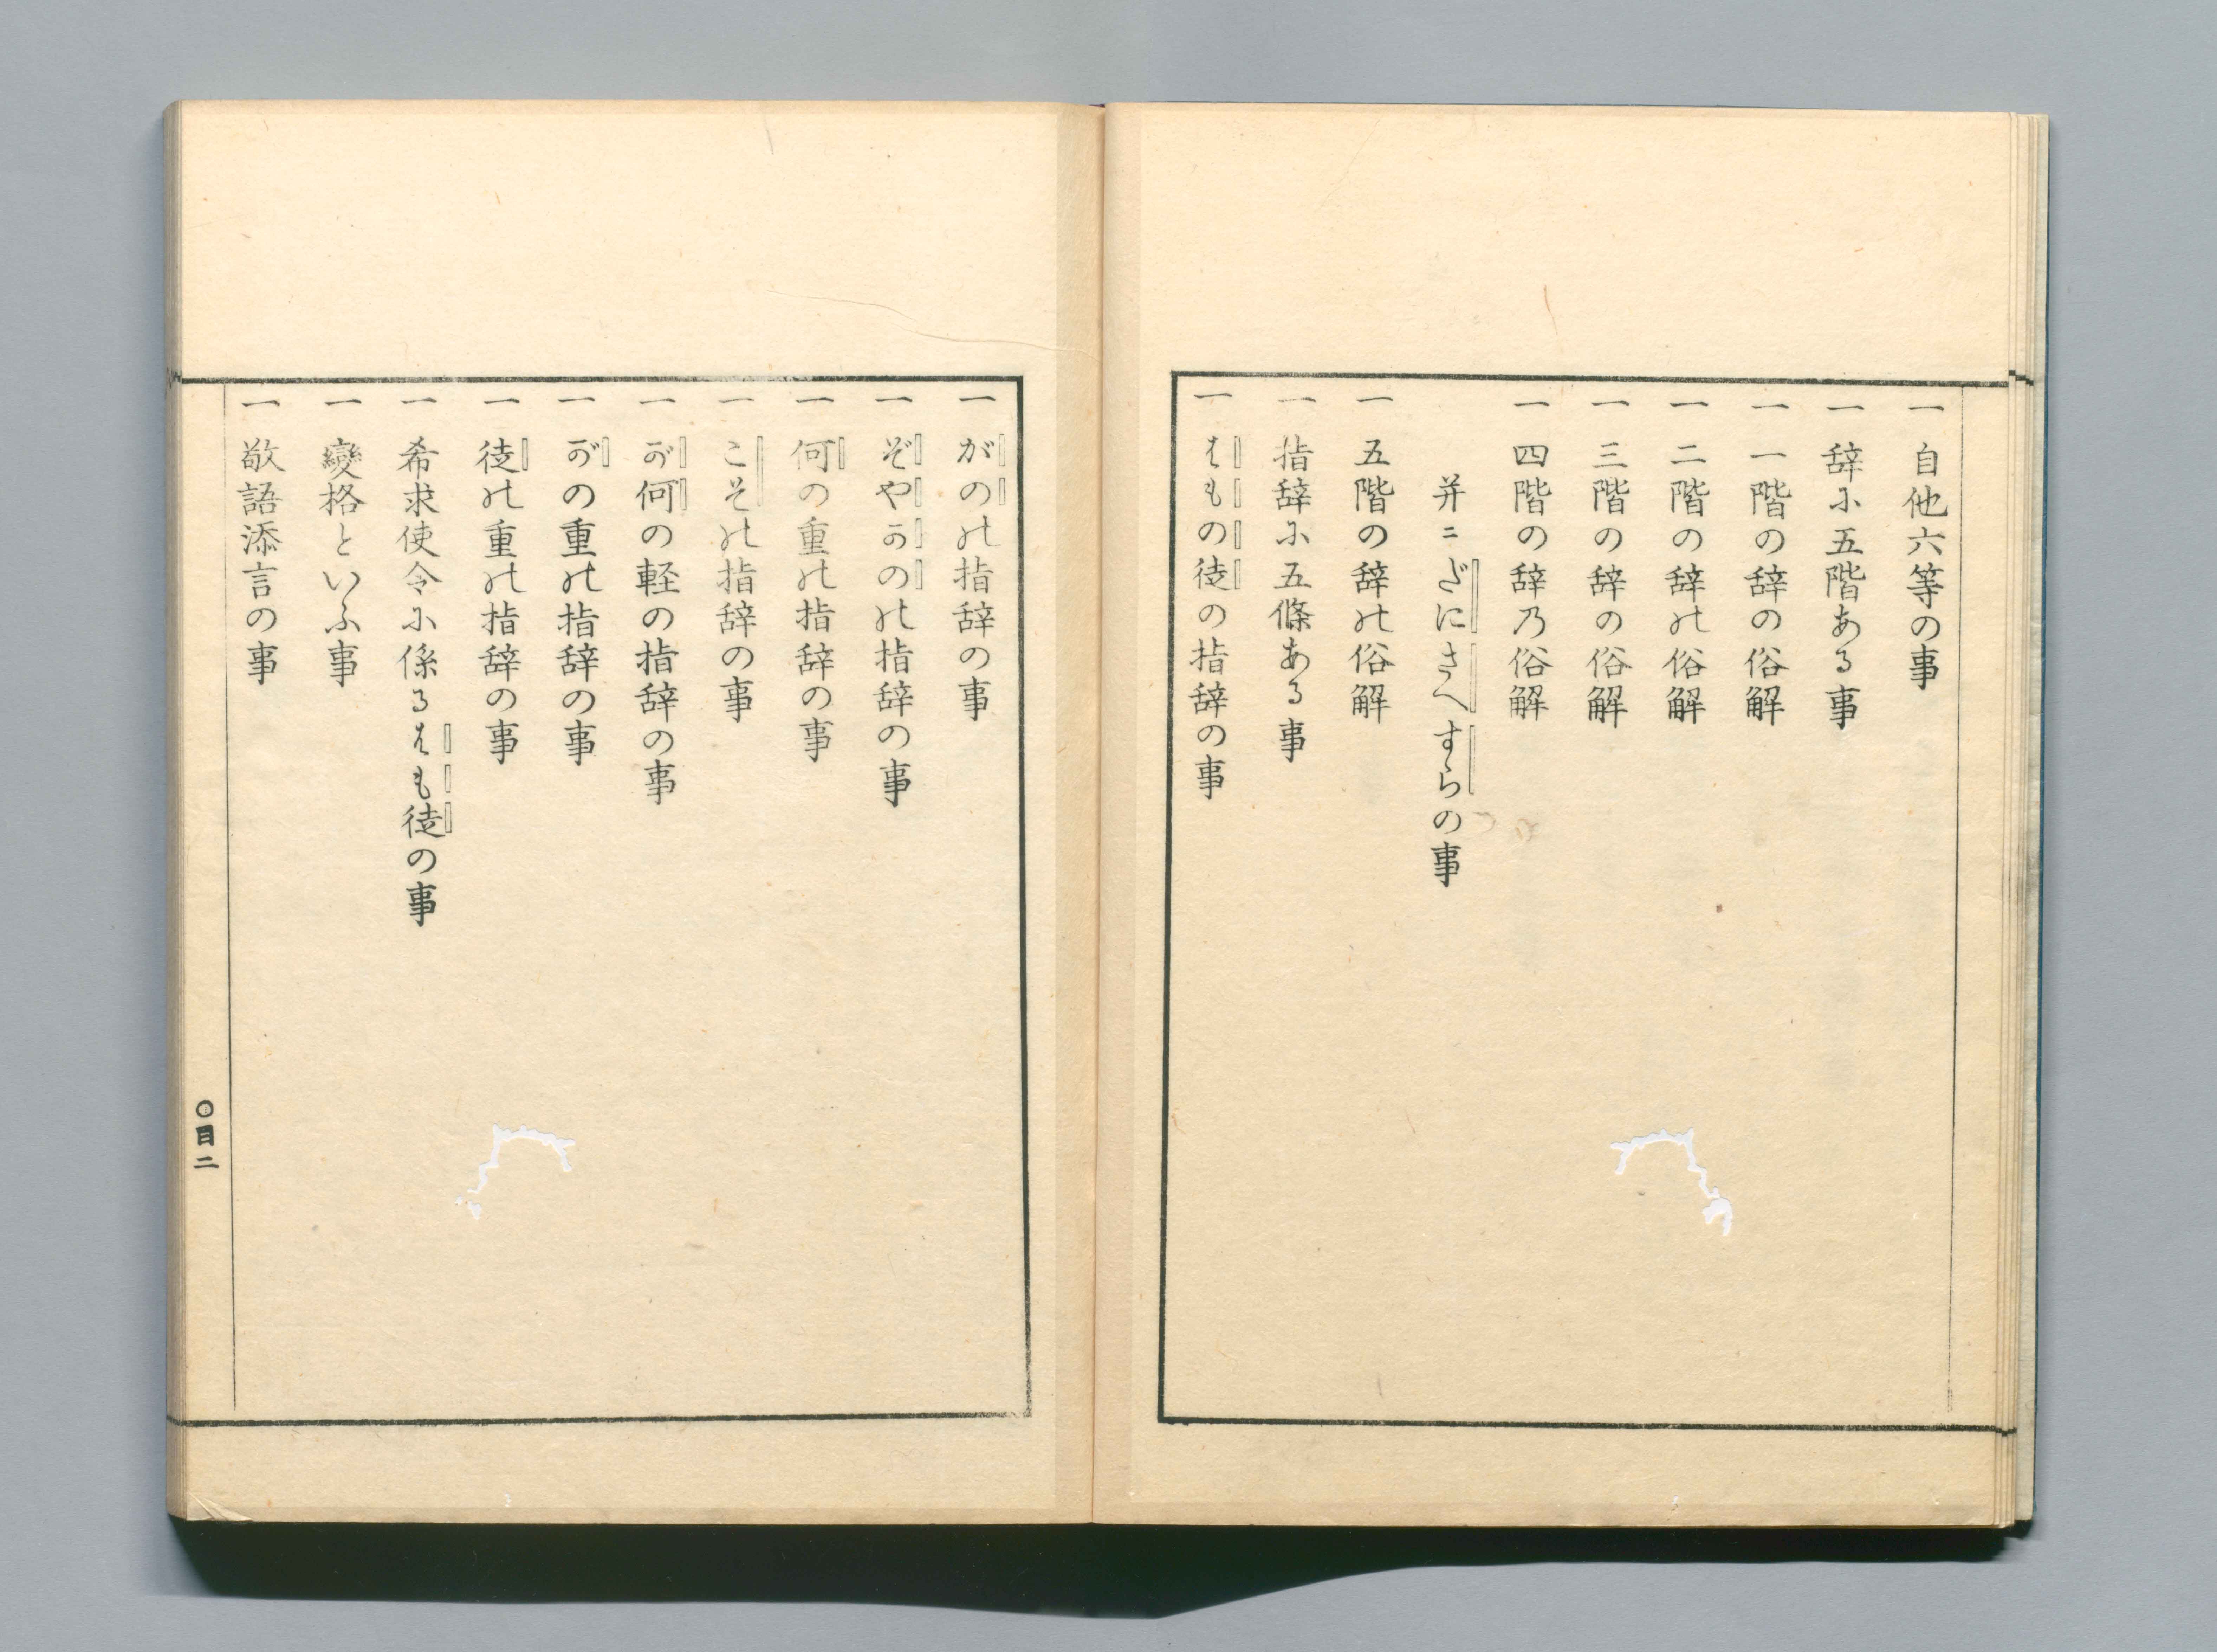 一 自他六等の事
一 辞に五階ある事
一 一階の辞の俗解
一 二階の辞の俗解
一 三階の辞の俗解
一 四階の辞乃俗解
并ニだにさへすらの事
一 五階の辞の俗解
一 指辞に五條ある事
一 はもの徒の指辞の事
一 がのの指辞の事
一 ぞやかのの指辞の事
一 何の重の指辞の事
一 こその指辞の事
一 が何の軽の指辞の事
一 がの重の指辞の事
一 徒の重の指辞の事
一 希求使令に係るはも徒の事
一 變格といふ事
一 敬語添言の事
○目二